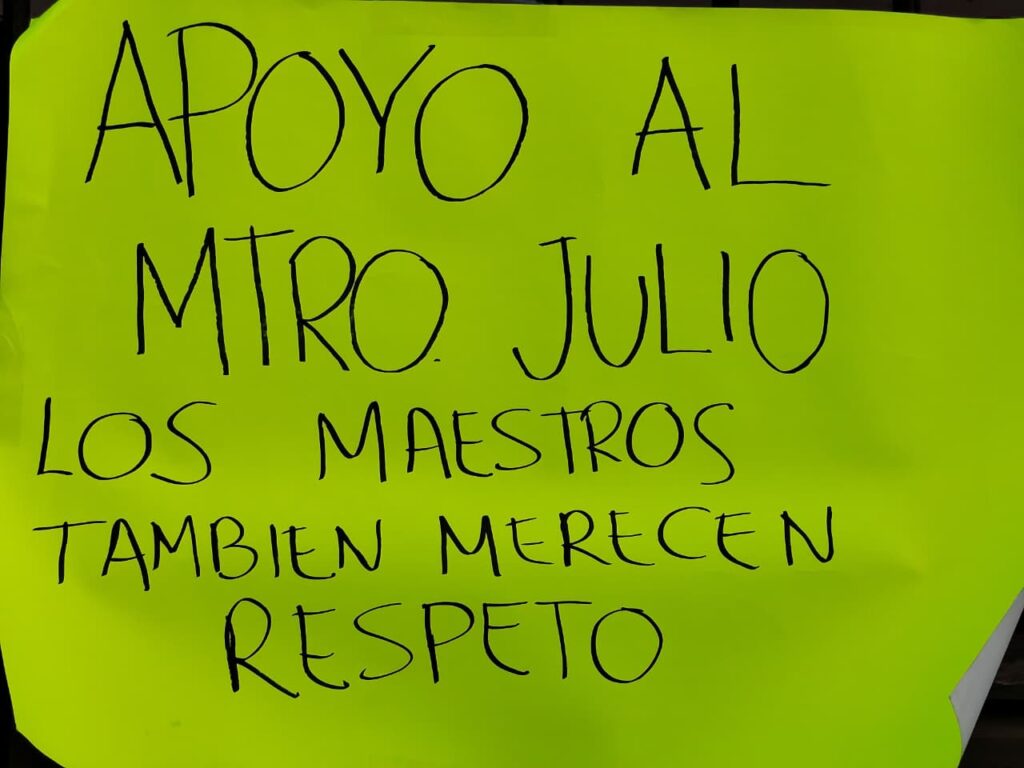 APOYO AL
MTRO. JULIO
LOS MAESTROS
TAMBIEN MERECEN
RESPETO